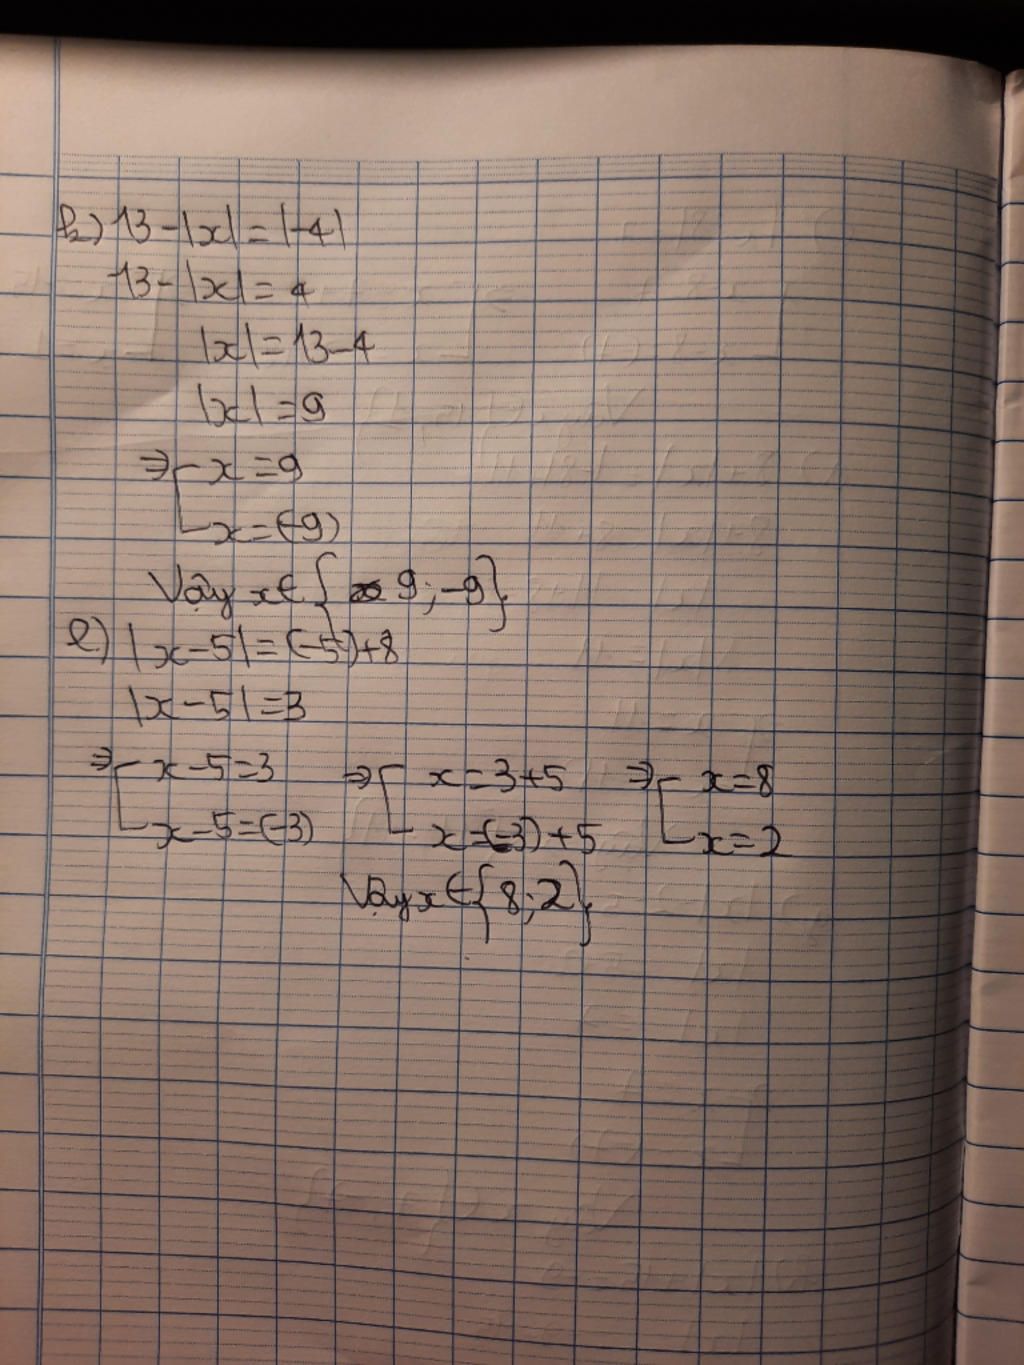 h) 13-|x|=|-4|
13-|x|=4
|x|=13-4
|x|=9
⇒[x=9
x=(-9)
Vậy x∈{9;-9}
l) |x-5|=(-5)+8
|x-5|=3
⇒[x-5=3 ⇒[x=3+5 ⇒[x=8
x-5=(-3) x=(-3)+5 x=2
Vậy x∈{8;2}